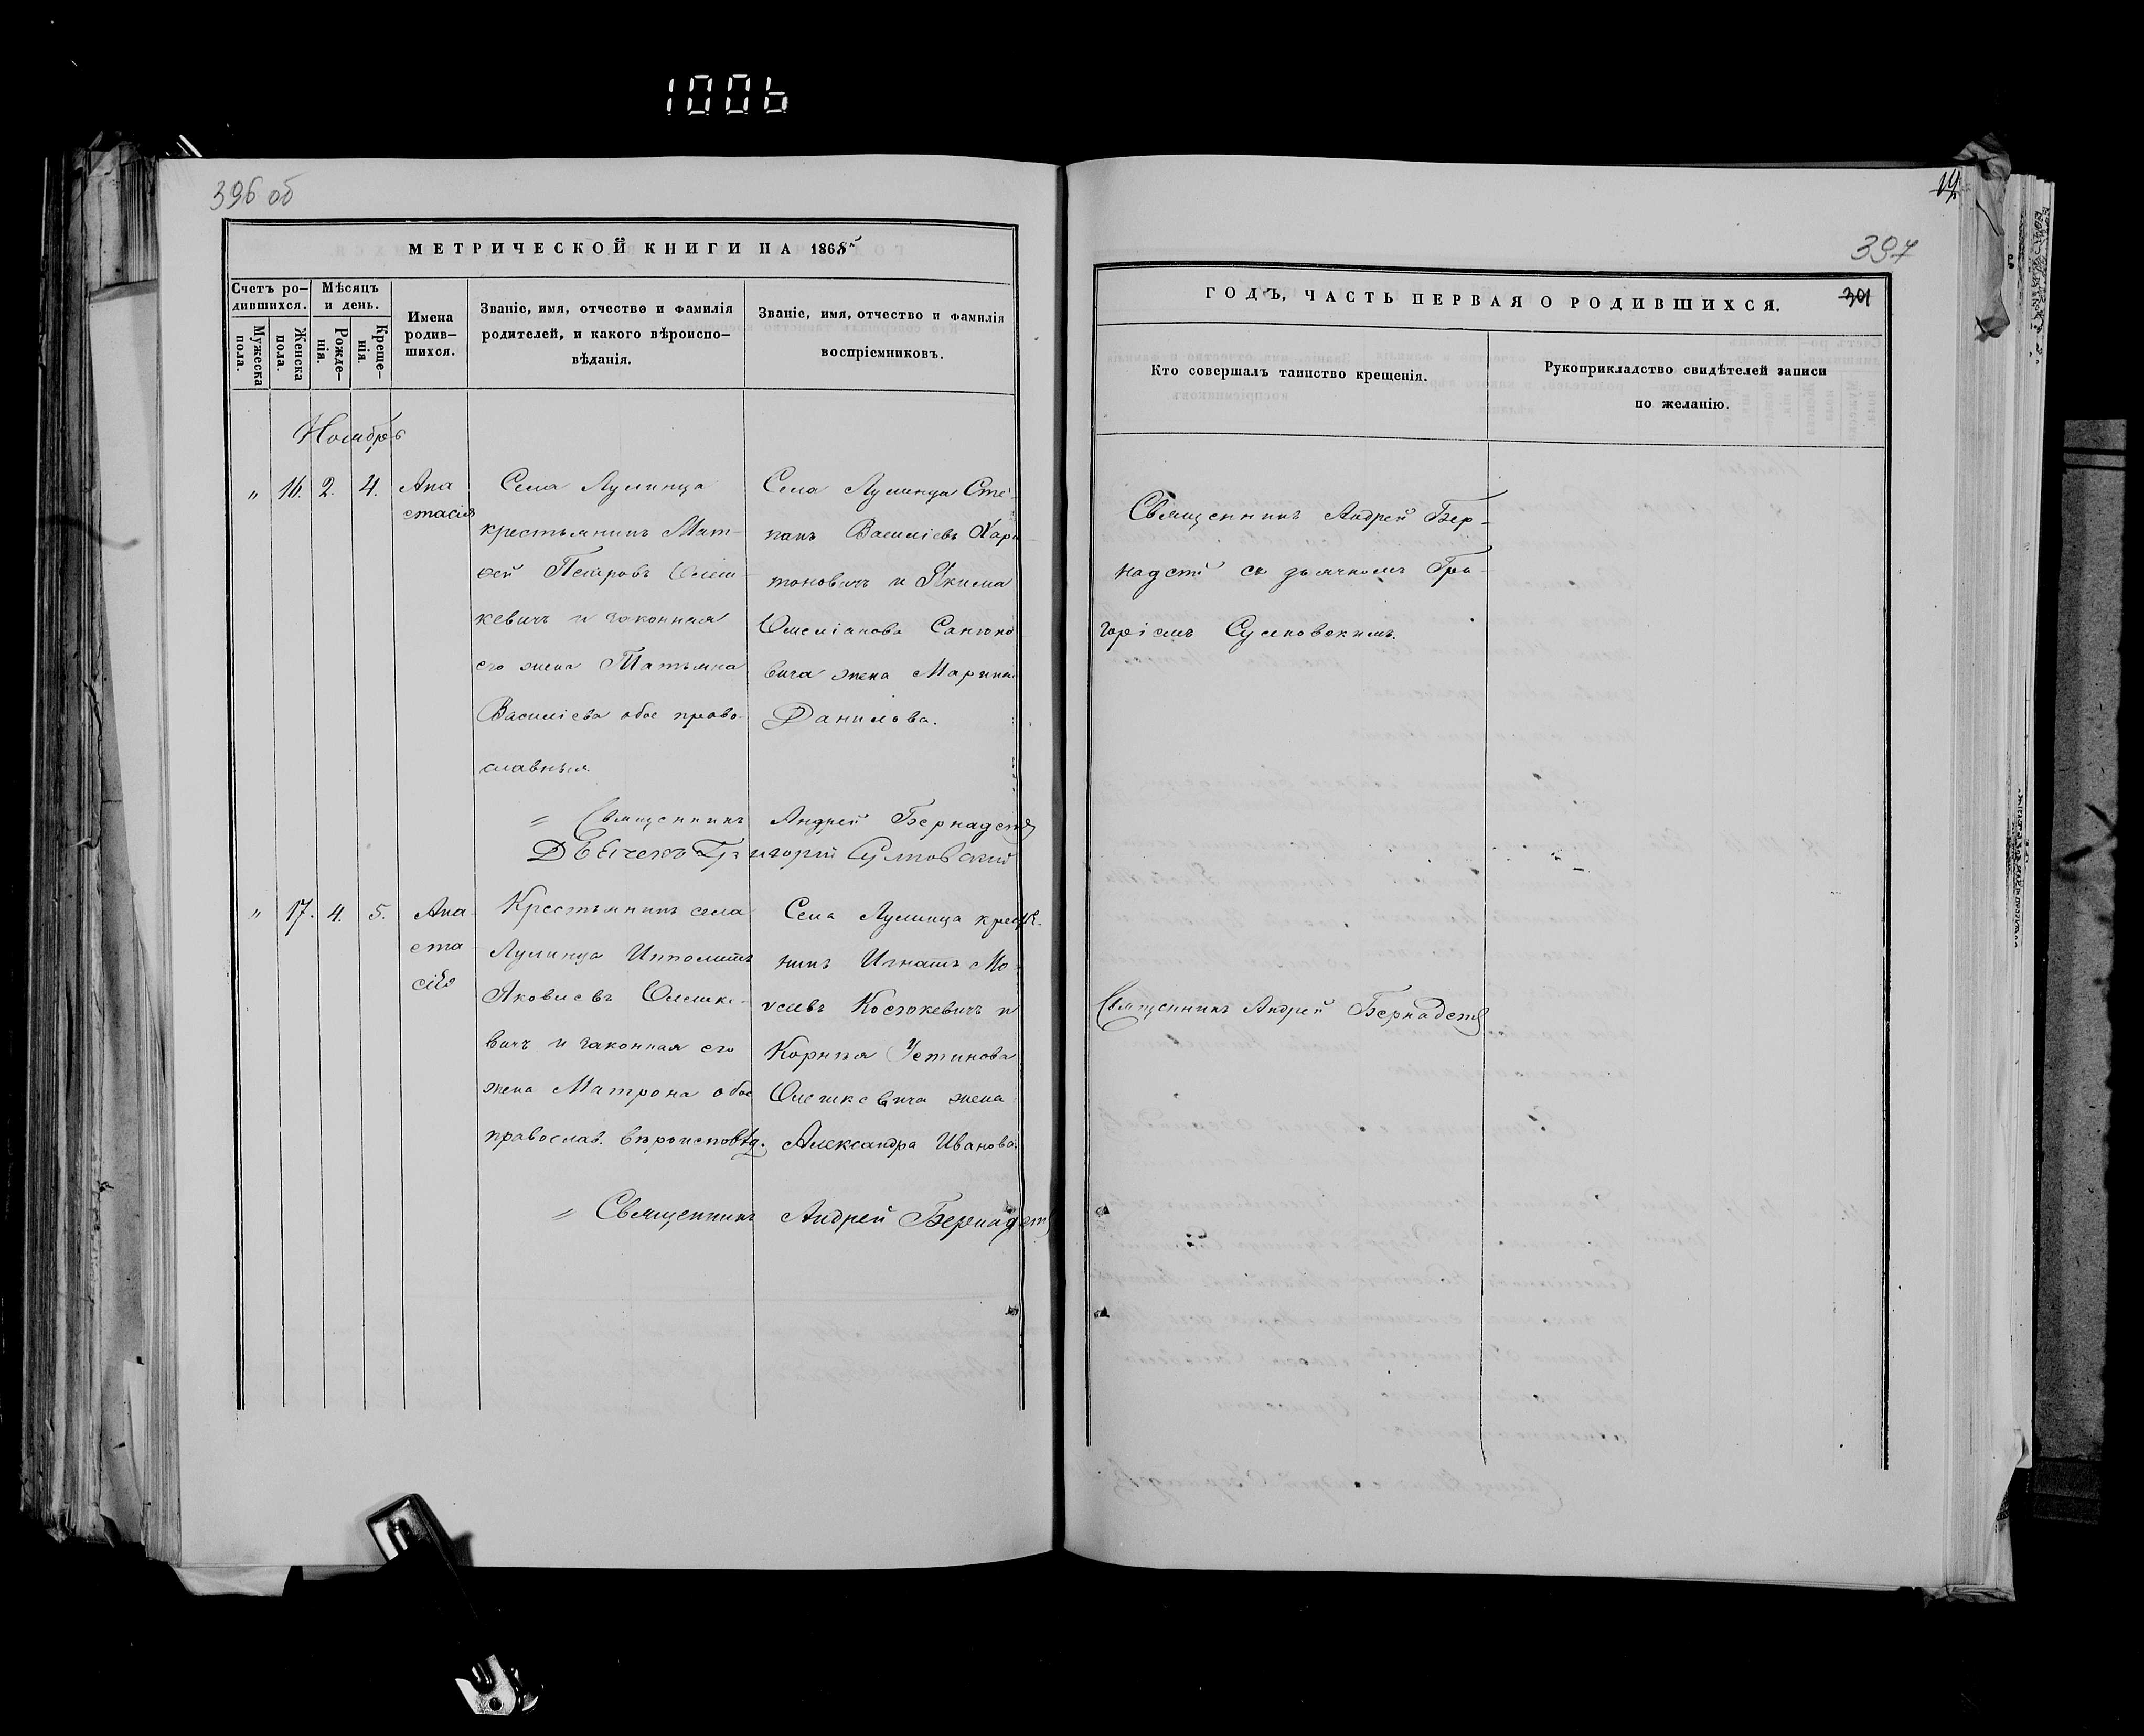 1006
396 об
МЕТРИЧЕСКОЙ КНИГИ НА 1868
Счетъ ро-
дившихся.
Мужеска
пола.
Женска
пола.
Мѣсяцъ
и день.
Рожде-
нія.
Креще-
нія.
Имена
родив-
шихся.
Званіе, имя, отчество и фамилія
родителей, и какого вѣроиспо-
вѣданія.
Званіе, имя, отчество и фамилія
воспріемниковъ.
Ноябрь
" 16. 2. 4.
Ана
стасія
Села Лулинца
крестьянинъ Мат-
ѳей Петровъ Олеш-
кевичъ и законная
его жена Татьяна
Василіева обое право-
славныя.
Села Лулинца Сте-
панъ Василіевъ Хари
тоновичъ и Якима
Омеліанова Санюко
вича жена Марина
Данилова.
Священникъ Андрей Бернадетъ
Дьячекъ Григорій Сулковскій
" 17. 4. 5.
Ана
ста
сія
Крестьянинъ села
Лулинца Ипполитъ
Яковлевъ Олешке-
вичъ и законная его
жена Матрона обое
православ. вѣроисповѣд.
Села Лулинца крестья-
нинъ Игнатъ Мо
усеевъ Косюкевичъ и
Корнія Устинова
Олешкевича жена
Александра Иванова.
Священникъ Андрей Бернадетъ
14
397
ГОДЪ, ЧАСТЬ ПЕРВАЯ О РОДИВШИХСЯ.
301
Кто совершалъ таинство крещенія.
Рукоприкладство свидѣтелей записи
по желанію.
Священникъ Андрей Бер-
надетъ съ дьячкомъ Гри-
горіемъ Сулковскимъ.
Священникъ Андрей Бернадетъ